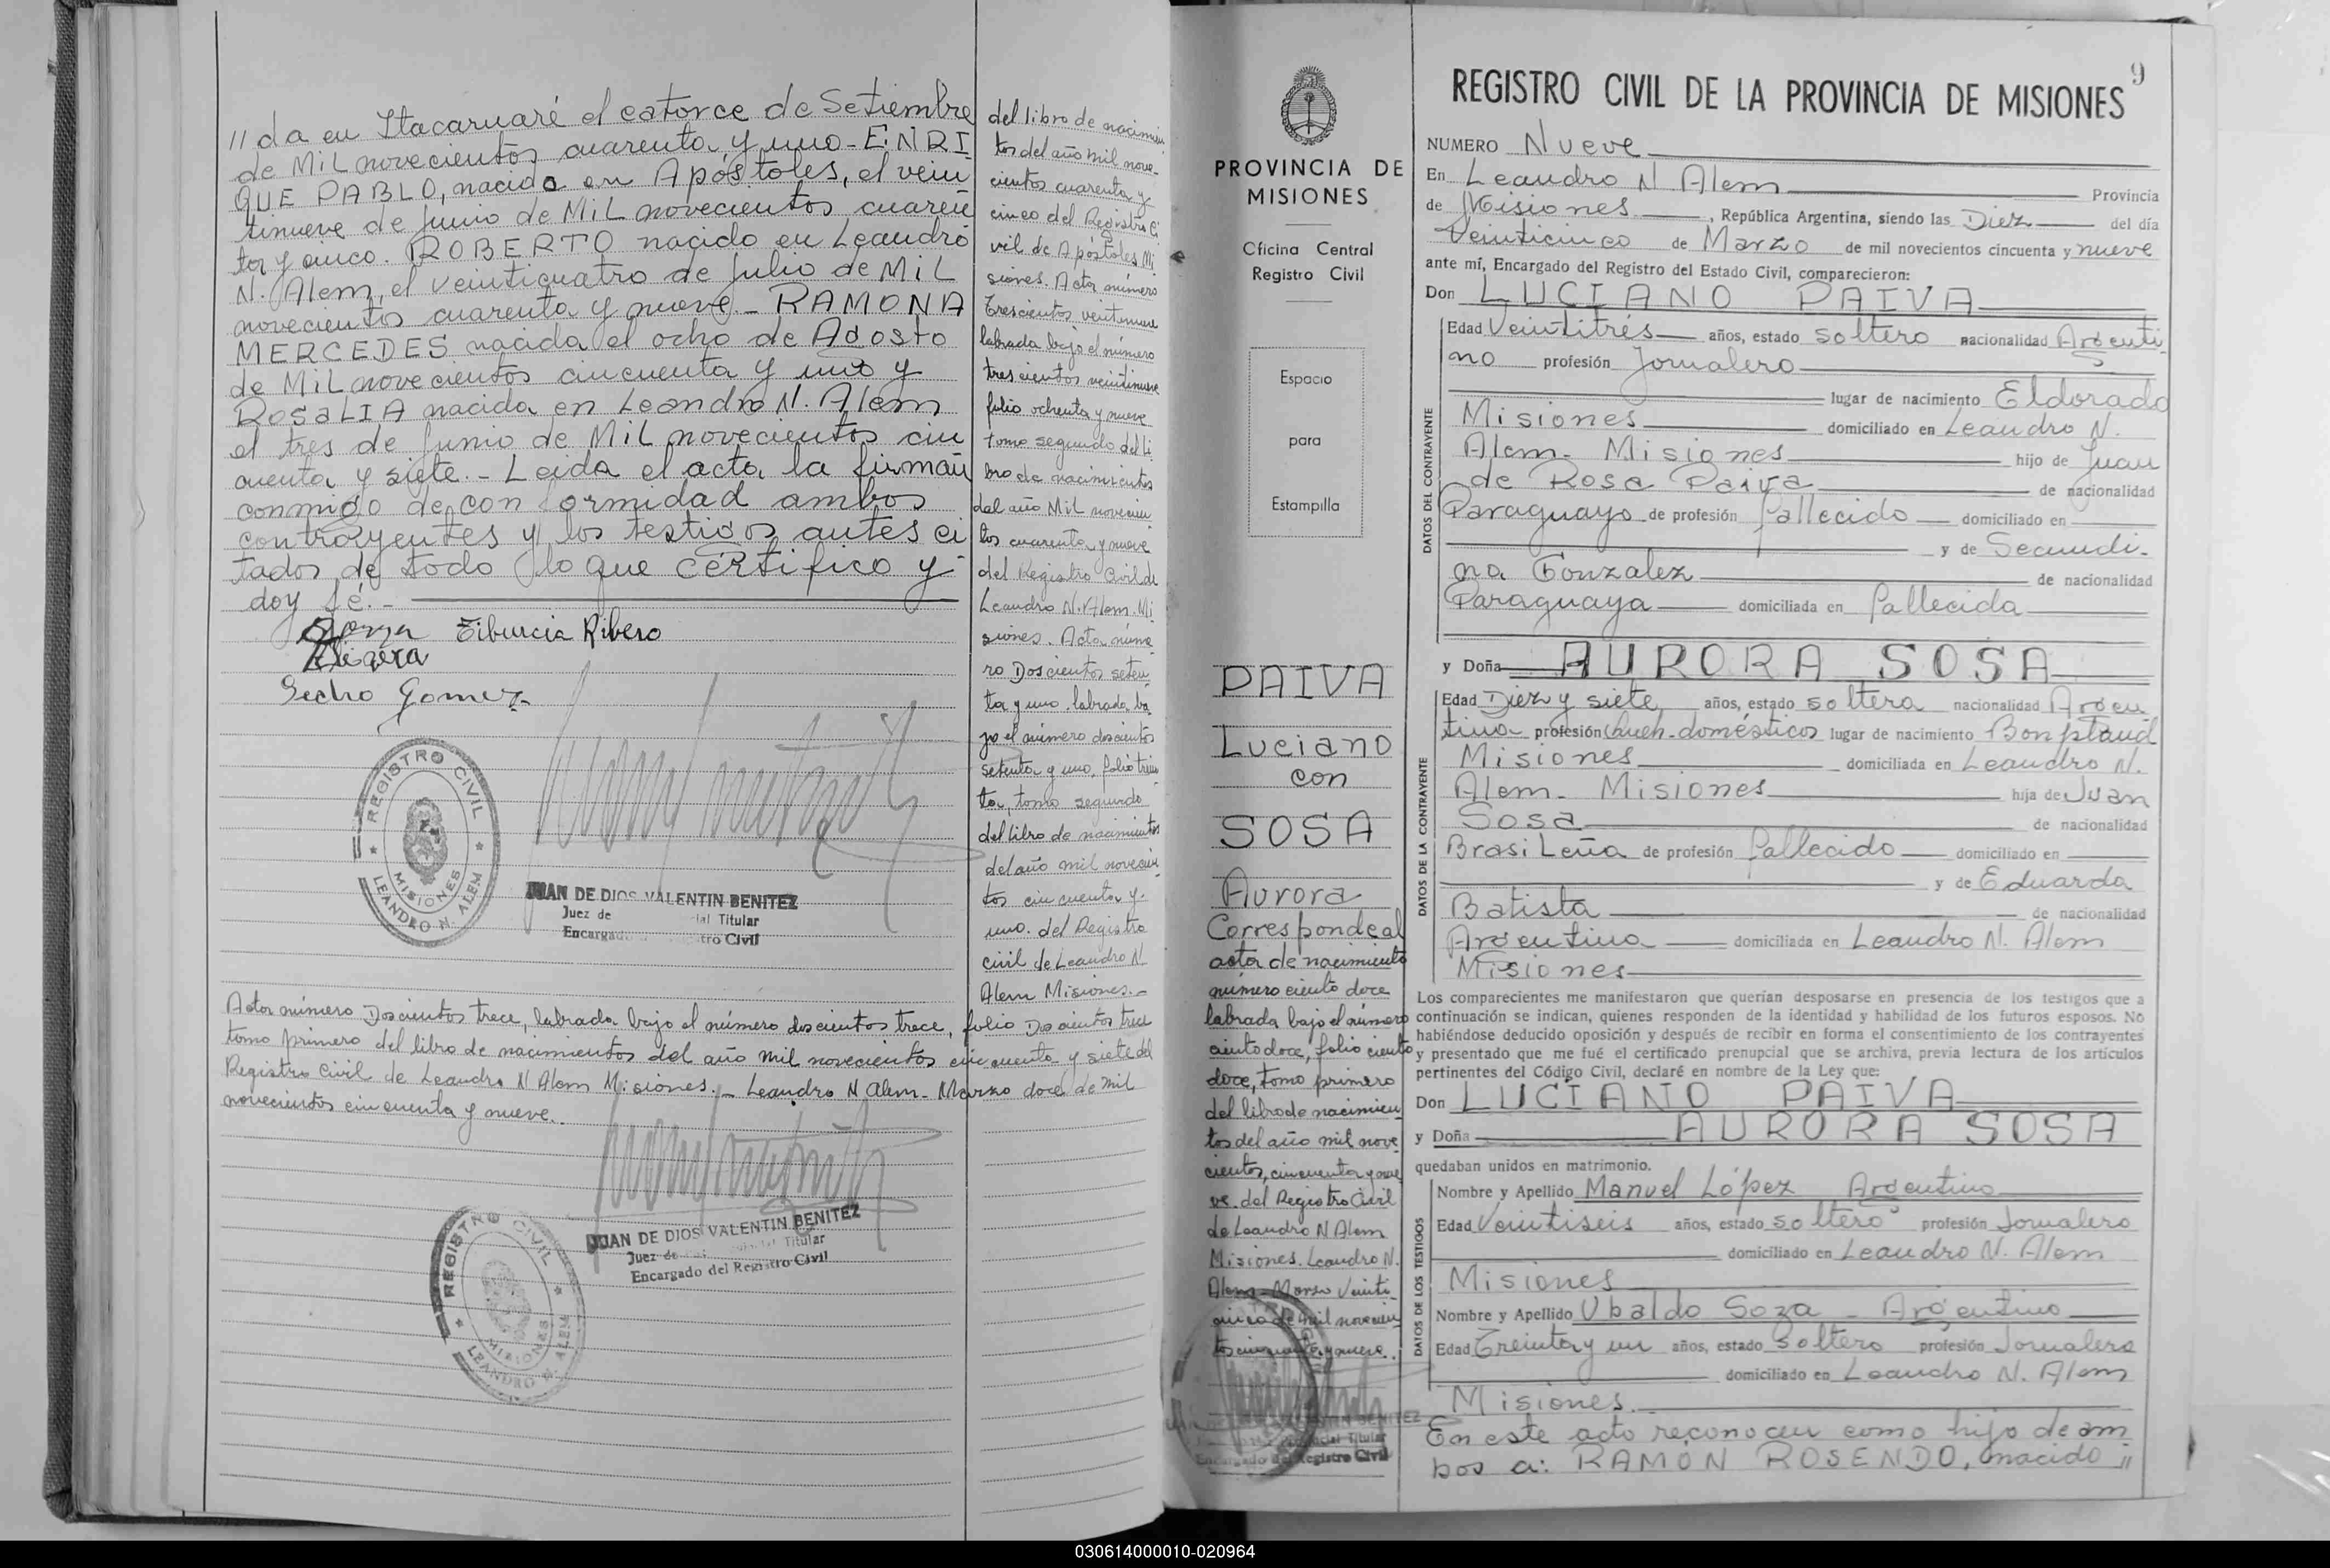 // da en Itacaruaré el catorce de Setiembre
de Mil novecientos cuarenta y uno - ENRI
QUE PABLO, nacido en Apóstoles, el vein
tinueve de Junio de Mil novecientos cuaren
ta y cinco. ROBERTO nacido en Leandro
N. Alem, el veinticuatro de Julio de Mil
novecientos cuarenta y nueve - RAMONA
MERCEDES nacida el ocho de Agosto
de Mil novecientos cincuenta y uno y
ROSALIA nacida en Leandro N. Alem
el tres de Junio de Mil novecientos cin
cuenta y siete. - Leida el acta la firman
conmigo de conformidad ambos
contrayentes y los testigos antes ci
tados de todo lo que certifico y
doy fé. -
Tiburcia Ribero
Pedro Gomez
REGISTRO CIVIL
MISIONES
LEANDRO N. ALEM
JUAN DE DIOS VALENTIN BENITEZ
Juez de ial Titular
Encargado tro Civil
Acta número Doscientos trece, labrada bajo el número doscientos trece, folio Doscientos trece
tomo primero del libro de nacimientos del año mil novecientos cincuenta y siete del
Registro Civil de Leandro N Alem Misiones. - Leandro N Alem - Marzo doce de mil
novecientos cincuenta y nueve.
JUAN DE DIOS VALENTIN BENITEZ
Juez de Titular
Encargado del Registro Civil
REGISTRO CIVIL
MISIONES
LEANDRO N. ALEM
del libro de nacimien
tos del año mil nove-
cientos cuarenta y
cinco del Registro Ci
vil de Apóstoles Mi
siones. Acta número
Trescientos veintinueve
labrada bajo el número
trescientos veintinueve
folio ochenta y nueve
tomo segundo del li
bro de nacimientos
del año Mil novecien
tos cuarenta y nueve
del Registro Civil de
Leandro N. Alem. Mi
siones. Acta núme
ro Doscientos seten
ta y uno, labrada ba
jo el número doscientos
setenta y uno, folio trein
ta, tomo segundo
del libro de nacimientos
del año mil novecien
tos cincuenta y
uno. del Registro
civil de Leandro N
Alem Misiones. -
PROVINCIA DE
MISIONES
Oficina Central
Registro Civil
Espacio
para
Estampilla
PAIVA
Luciano
con
SOSA
Aurora
Corresponde al
acta de nacimiento
número ciento doce
labrada bajo el número
ciento doce, folio ciento
doce, tomo primero
del libro de nacimien
tos del año mil nove
cientos, cincuenta y nue
ve. del Registro Civil
de Leandro N Alem
Misiones. Leandro N.
Alem - Marzo Veinti
cinco de mil novecien
tos cincuenta y nueve.
Titular
Encargado del Registro Civil
9
REGISTRO CIVIL DE LA PROVINCIA DE MISIONES
NUMERO Nueve
En Leandro N Alem Provincia
de Misiones, República Argentina, siendo las Diez del día
Veinticinco de Marzo de mil novecientos cincuenta y nueve
ante mí, Encargado del Registro del Estado Civil, comparecieron:
Don LUCIANO PAIVA
DATOS DEL CONTRAYENTE
Edad Veintitrés años, estado soltero nacionalidad Argenti
no profesión Jornalero
lugar de nacimiento Eldorado
Misiones domiciliado en Leandro N.
Alem - Misiones hijo de Juan
de Rosa Paiva de nacionalidad
Paraguayo de profesión fallecido domiciliado en
y de Secundi-
na Gonzalez de nacionalidad
Paraguaya domiciliada en fallecida
y Doña AURORA SOSA
DATOS DE LA CONTRAYENTE
Edad Diez y siete años, estado soltera nacionalidad Argen
tina profesión Queh-domésticos lugar de nacimiento Bonpland
Misiones domiciliada en Leandro N.
Alem - Misiones hija de Juan
Sosa de nacionalidad
Brasileña de profesión fallecido domiciliado en
y de Eduarda
Batista de nacionalidad
Argentina domiciliada en Leandro N. Alem
Misiones
Los comparecientes me manifestaron que querían desposarse en presencia de los testigos que a
continuación se indican, quienes responden de la identidad y habilidad de los futuros esposos. No
habiéndose deducido oposición y después de recibir en forma el consentimiento de los contrayentes
y presentado que me fué el certificado prenupcial que se archiva, previa lectura de los artículos
pertinentes del Código Civil, declaré en nombre de la Ley que:
Don LUCIANO PAIVA
y Doña AURORA SOSA
quedaban unidos en matrimonio.
DATOS DE LOS TESTIGOS
Nombre y Apellido Manuel López Argentino
Edad Veintiseis años, estado soltero profesión Jornalero
domiciliado en Leandro N. Alem
Misiones
Nombre y Apellido Ubaldo Soza - Argentino
Edad Treinta y un años, estado soltero profesión Jornalero
domiciliado en Leandro N. Alem
Misiones.
En este acto reconocen como hijo de am
bos a: RAMÓN ROSENDO, nacido //
030614000010-020964